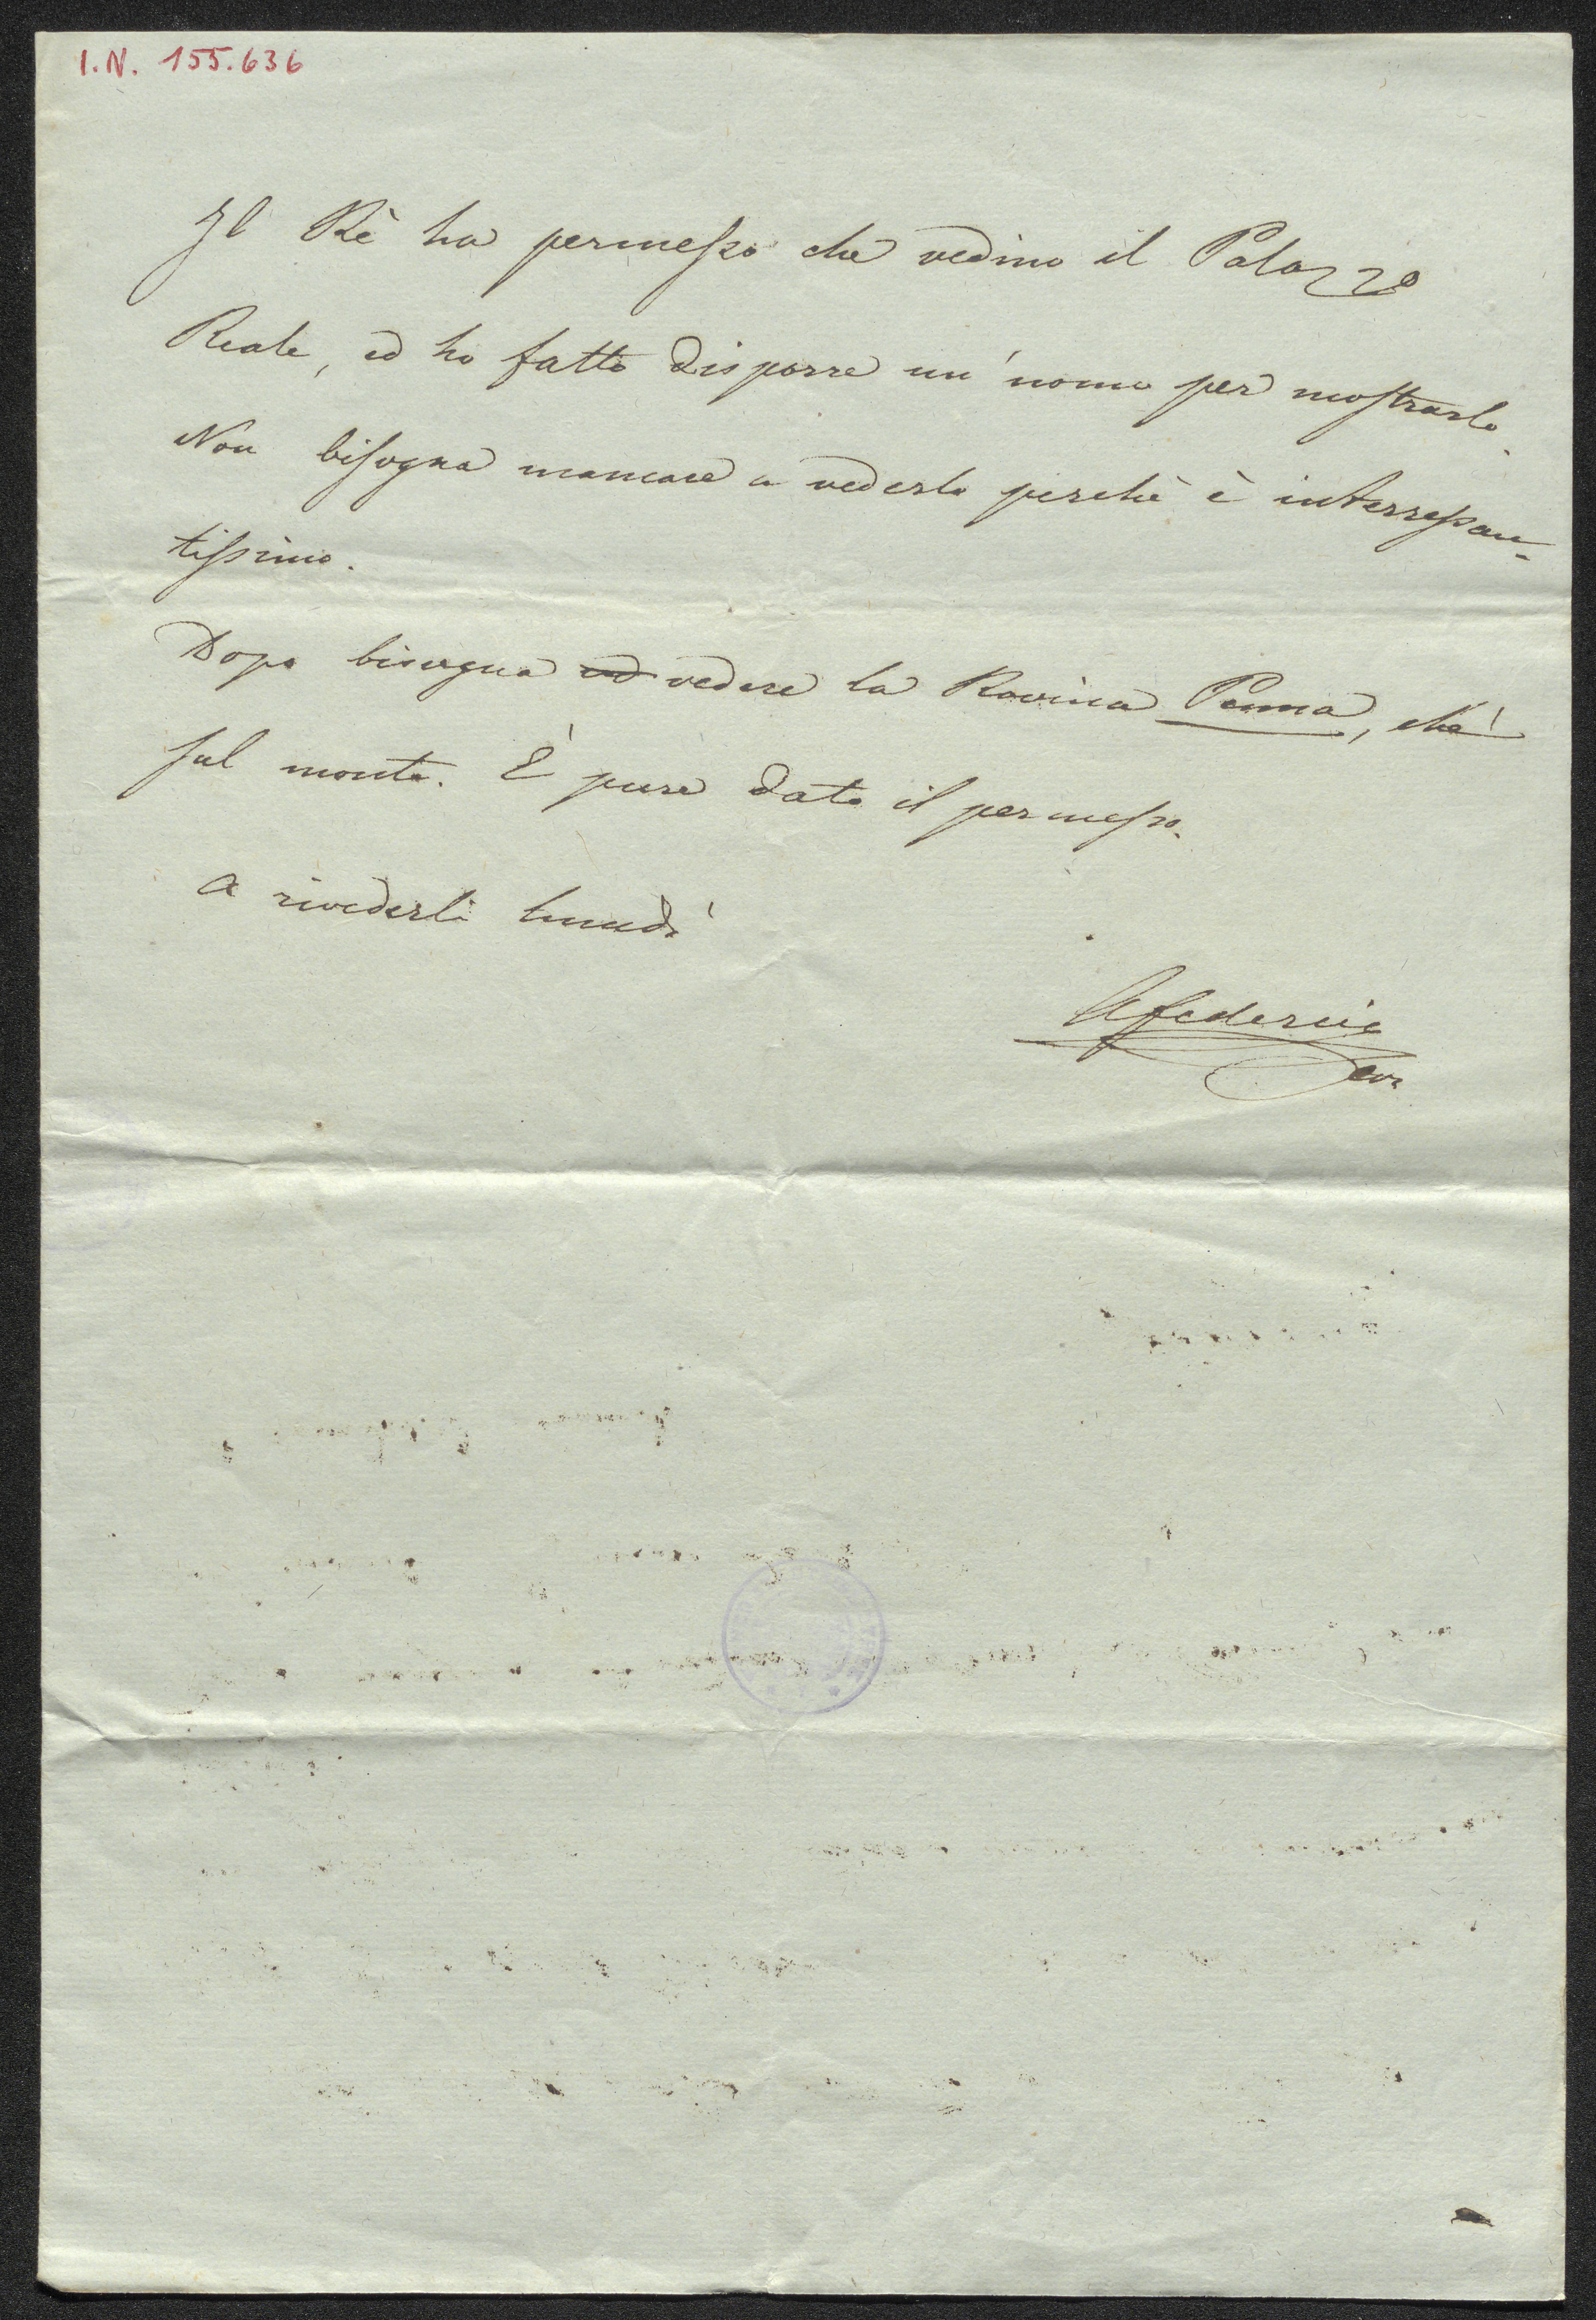 I.N. 155.636
Il Rè ha permesso che vedino il Palazzo
Reale, ed ho fatto disporre un'uomo per mostrarlo.
Non bisogna mancare a vederlo perchè è interressan-
tissimo.
Dopo bisogna ed vedere la Rovina Penna, ch'è
sul monte. È pure dato il permesso.
A rivederli lunedì